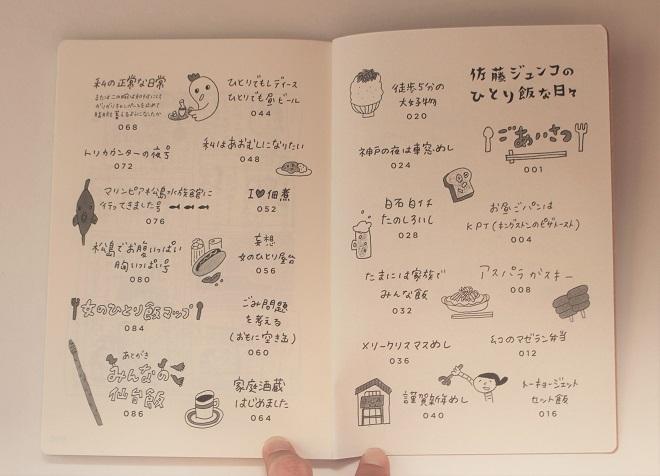 佐藤ジュンコの
ひとり飯な日々
ごあいさつ
001
お昼ごパンは
KPT(キングストンのピザトースト)
004
アスパラガスキー
008
幻のマゼラン弁当
012
トーキョージェット
セット飯
016
徒歩5分の
大好物
020
神戸の夜は車窓めし
024
白石白イチ
たのしろいし
028
たまには家族で
みんな飯
032
メリークリスマスめし
036
謹賀新年めし
040
ひとりでもレディース
ひとりでも昼ビール
044
私はあおむしになりたい
048
I♥佃煮
052
妄想
女のひとり屋台
056
ごみ問題
を考える
(おもに空き缶)
060
家庭酒蔵
はじめました
064
私の正常な日常
068
トリカウンターの夜号
072
マリンピア松島水族館に
行ってきました号
076
松島でお腹いっぱい
胸いっぱい号
080
女のひとり飯マップ
084
あとがき
みんなの
仙台飯
086